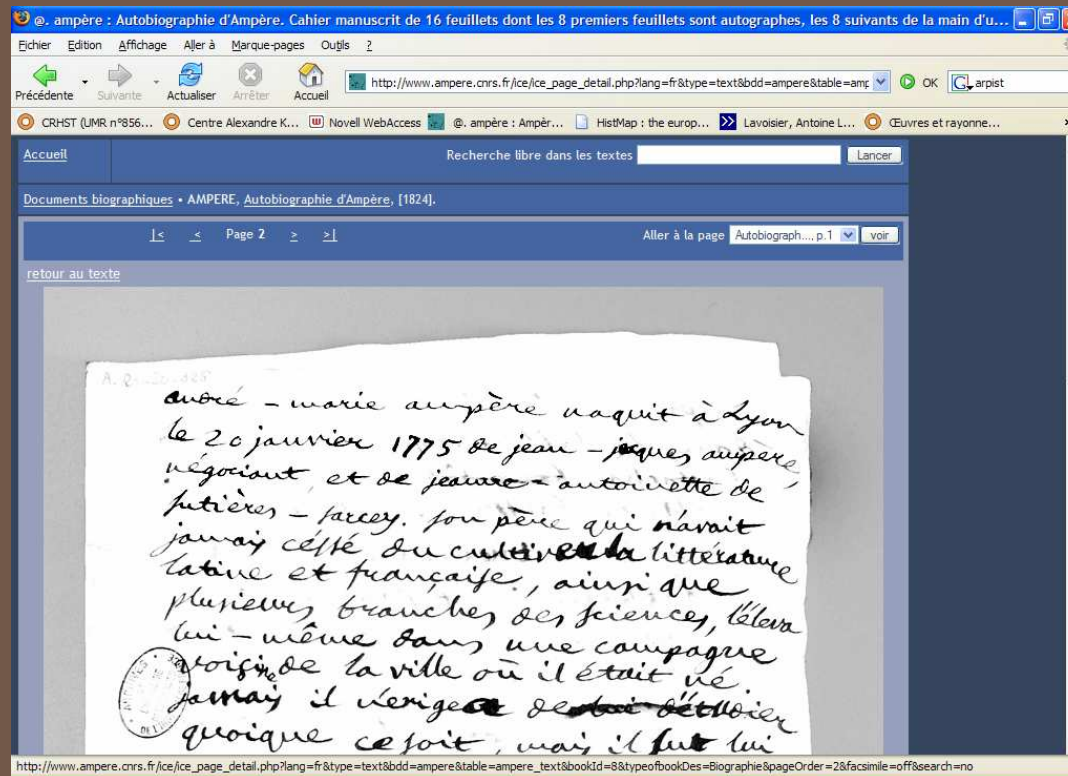 @. ampère : Autobiographie d'Ampère. Cahier manuscrit de 16 feuillets dont les 8 premiers feuillets sont autographes, les 8 suivants de la main d'u...
Fichier Edition Affichage Aller à Marque-pages Outils ?
Précédente Suivante Actualiser Arrêter Accueil http://www.ampere.cnrs.fr/ice/ice_page_detail.php?lang=fr&type=text&bdd=ampere&table=amp OK arpist
CRHST (UMR n°856... Centre Alexandre K... Novell WebAccess @. ampère : Ampèr... HistMap : the europ... Lavoisier, Antoine L... Œuvres et rayonne...
Accueil Recherche libre dans les textes Lancer
Documents biographiques • AMPERE, Autobiographie d'Ampère, [1824].
|< < Page 2 > >| Aller à la page Autobiograph..., p.1 voir
retour au texte
andré - marie ampère naquit à Lyon
le 20 janvier 1775 de jean - jaques ampère,
négociant, et de jeanne - antoinette de
sutières - sarcey. son père qui n'avait
jamais cessé de cultiver la littérature
latine et française, ainsi que
plusieurs branches des sciences, l'éleva
lui - même dans une campagne
voisine de la ville où il était né.
jamais il n'exigea d'étudier
quoique ce soit, mais il sut lui
http://www.ampere.cnrs.fr/ice/ice_page_detail.php?lang=fr&type=text&bdd=ampere&table=ampere_text&bookId=8&typeofbookDes=Biographie&pageOrder=2&facsimile=off&search=no